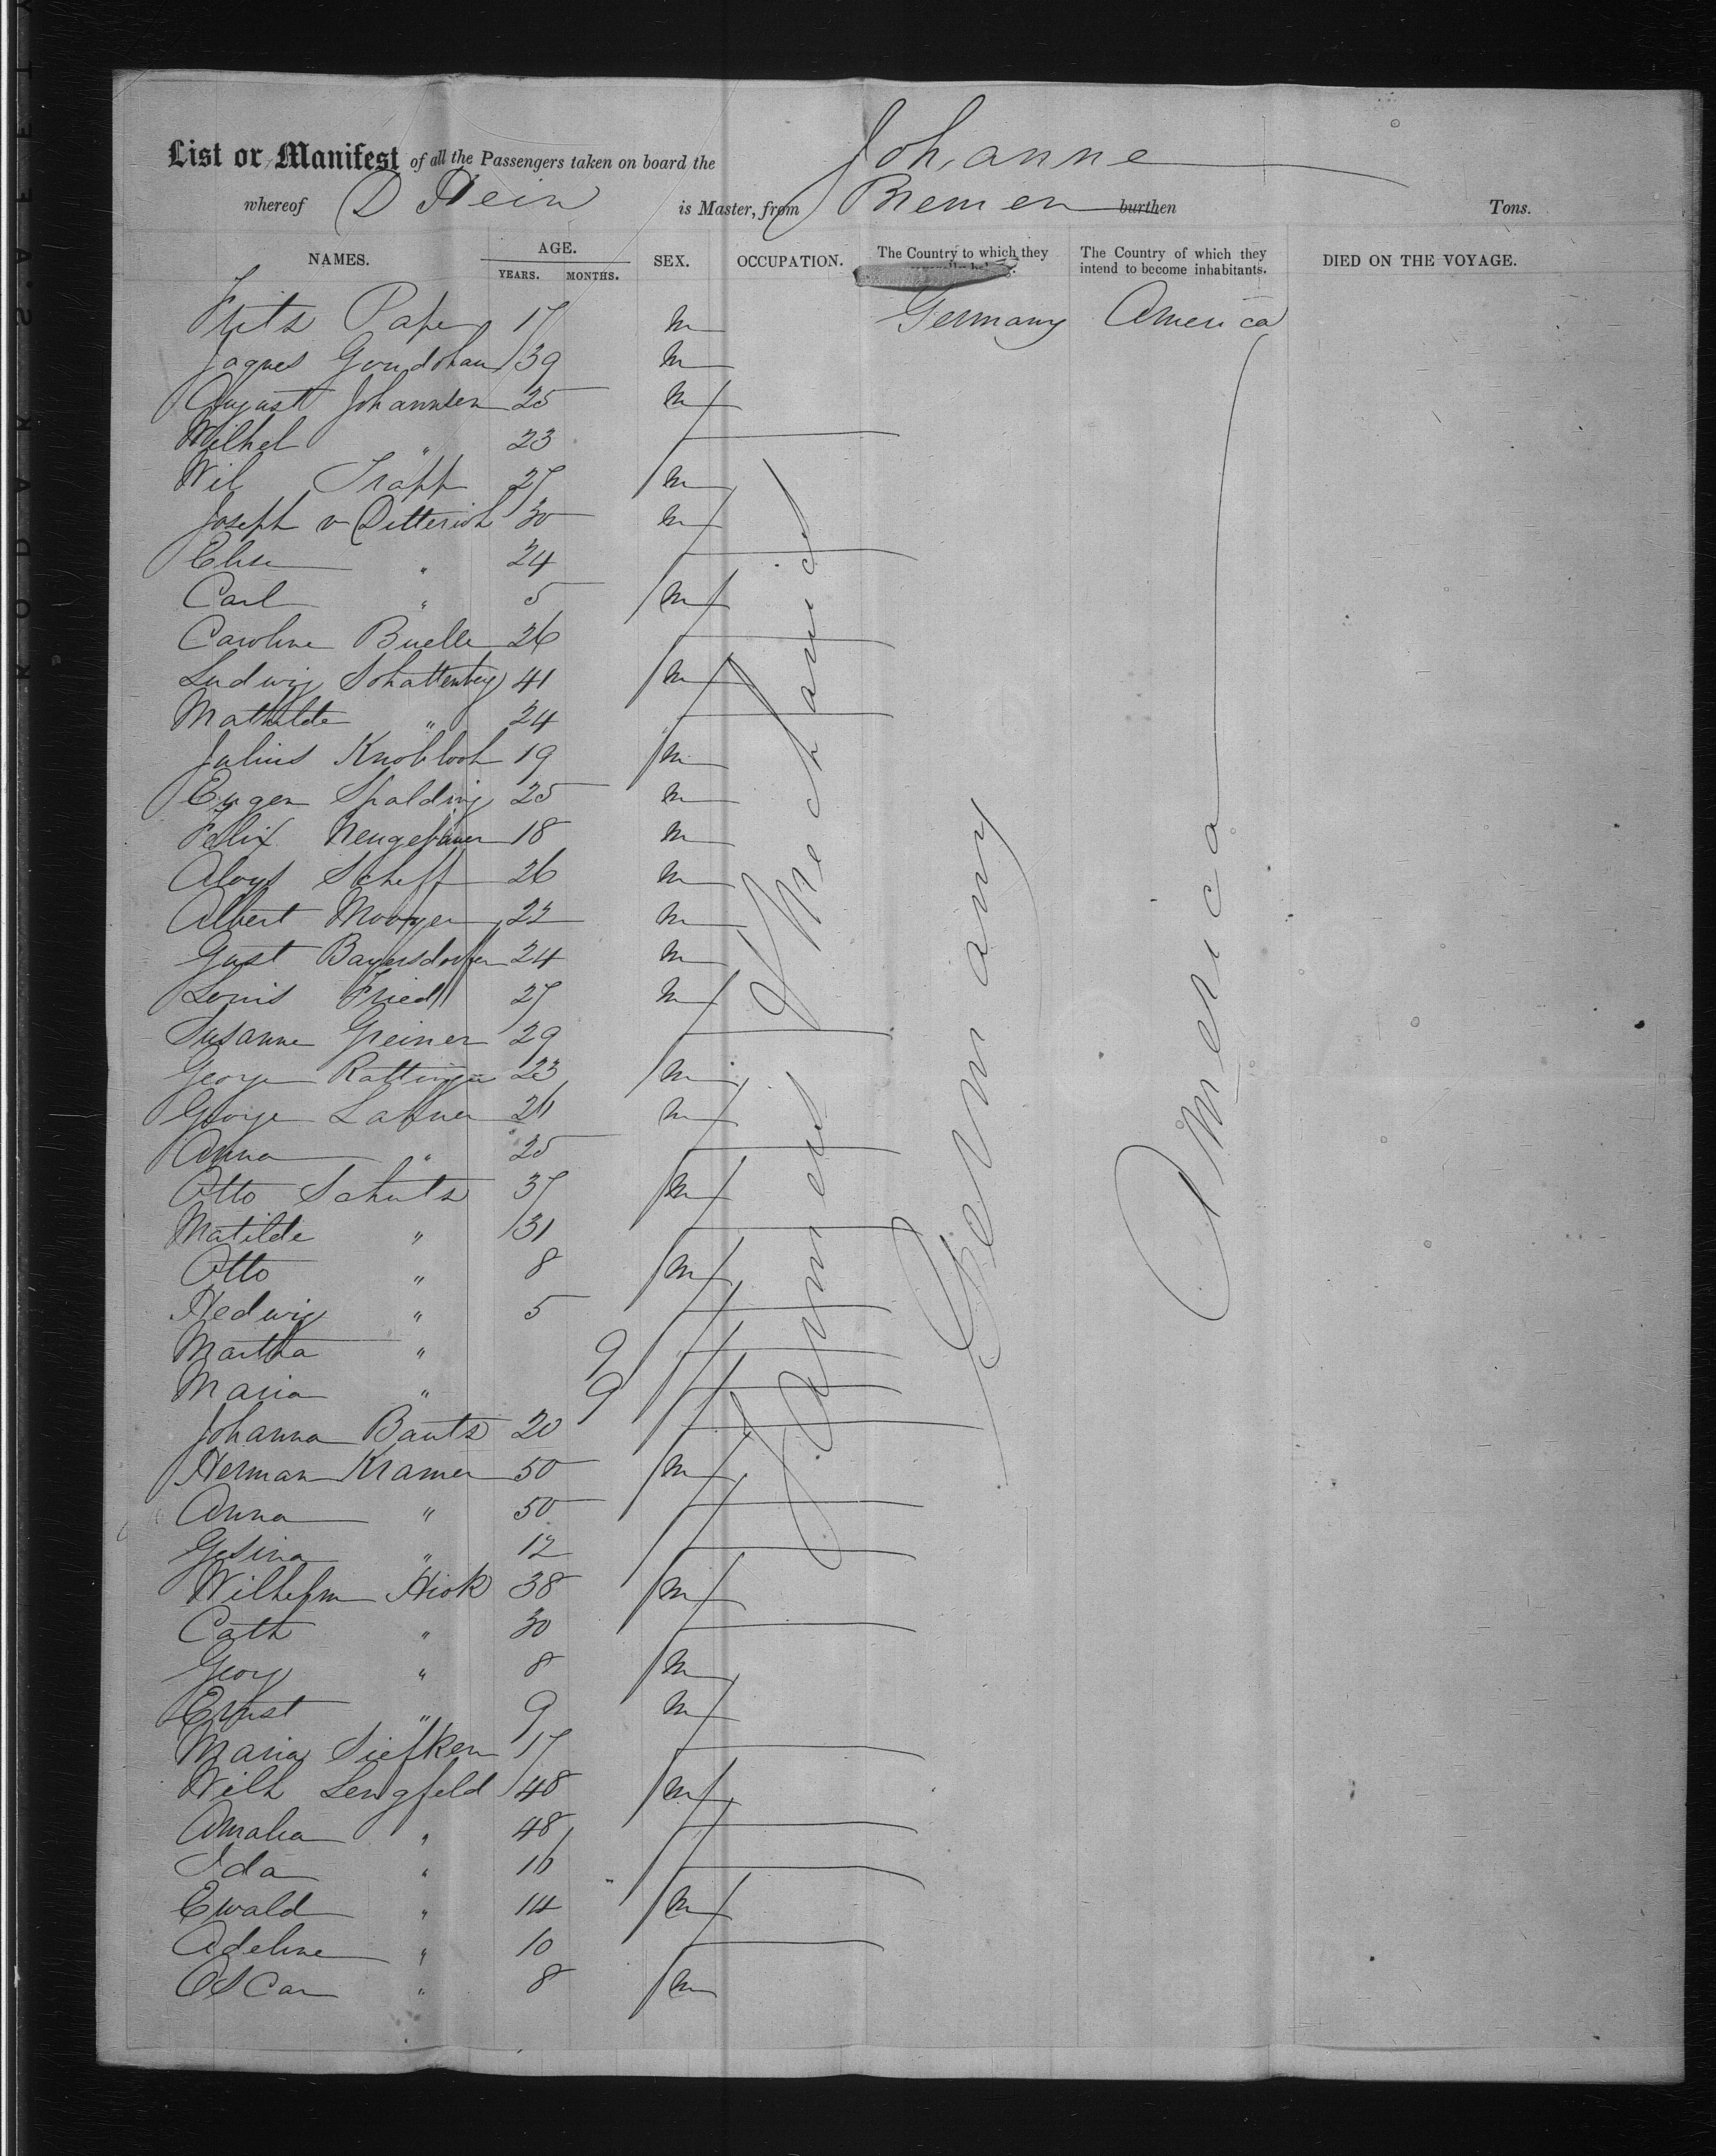 List or Manifest of all the Passengers taken on board the Johanne
whereof D Hein is Master, from Bremen burthen Tons.
NAMES. AGE. YEARS. MONTHS. SEX. OCCUPATION. The Country to which they The Country of which they intend to become inhabitants. DIED ON THE VOYAGE.
Frits Pape 17 m Germany America
Jaques 39 m
August Johannsen 25 m
Wilhel " 23 f
Wil Trapp 27 m
Joseph v Ditterich 30 m
Elise " 24 f
Carl " 5 m
Caroline Buelle 26 f
Ludwig Schattenberg 41 m
Mathilde " 24 f
Julius Knobloch 19 m
Eugen Spalding 25 m
Felix Neugebauer 18 m
Aloys Scheff 26 m
Albert 22 m
Gust Bayersdorfer 24 m
Louis Fried 27 m
Susanne Greiner 29 f
George 23 m
George Lahner 26 m
Anna " 25 f
Otto Schuts 37 m
Matilde " 31 f
Otto " 8 m
Hedwig " 5 f
Martha " 9 f
Maria " 9 f
Johanna Bauts 20 f
Herman Kramer 50 m
Anna " 50 f
Gesina " 12 f
Wilhelm Hick 38 m
Cath " 30 f
Georg " 8 m
Ernst " 9 m
Maria Siefken 17 f
Wilh Lengfeld 48 m
Amalia " 48 f
Ida " 16 f
Ewald " 14 m
Adeline " 10 f
Oscar " 8 m
Farmers & Mechanics
Germany
America